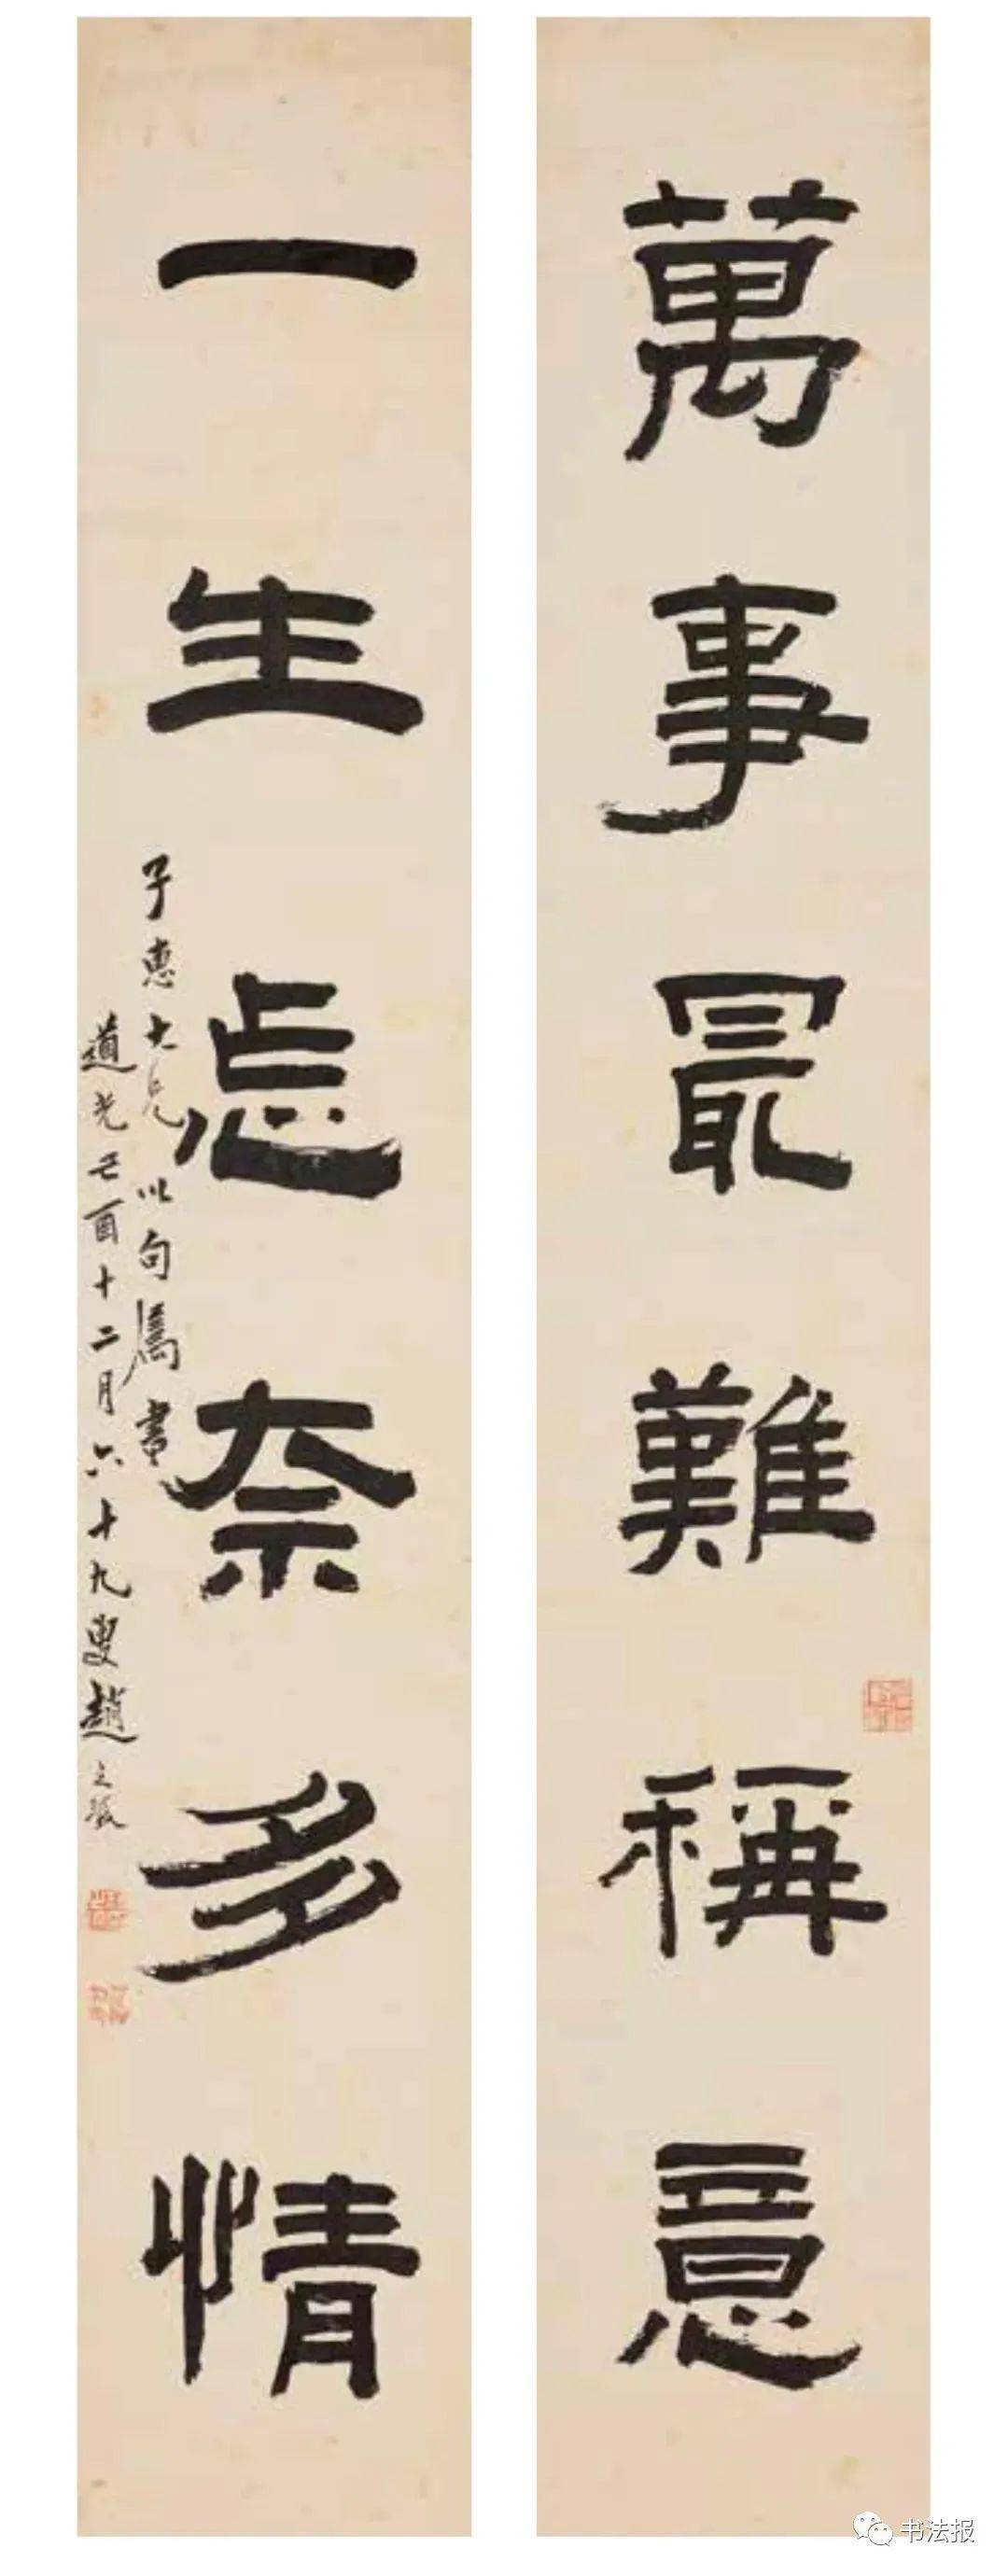 萬事最難稱意
一生怎奈多情
子惠大兄以句屬書
道光己酉十二月六十九叟趙之琛
书法报